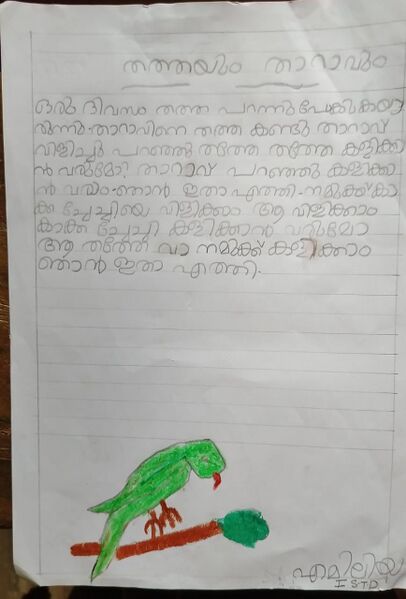 തത്തയും താറാവും
ഒരു ദിവസം തത്ത പറന്നുപോകുകയാ
രുന്നു. താറാവിനെ തത്ത കണ്ടു താറാവ്
വിളിച്ചു പറഞ്ഞു തത്തേ തത്തേ കളിക്കാ
ൻ വരുമോ? താറാവ് പറഞ്ഞു കളിക്കാ
ൻ വരും. ഞാൻ ഇതാ എത്തി. നമുക്ക് കാ
ക്ക ച്ചേച്ചിയെ വിളിക്കാം ആ വിളിക്കാം
കാക്ക ച്ചേച്ചി കളിക്കാൻ വരുമോ
ആ തത്തേ വാ നമുക്ക് കളിക്കാം
ഞാൻ ഇതാ എത്തി.
എമിലിയ
I STD